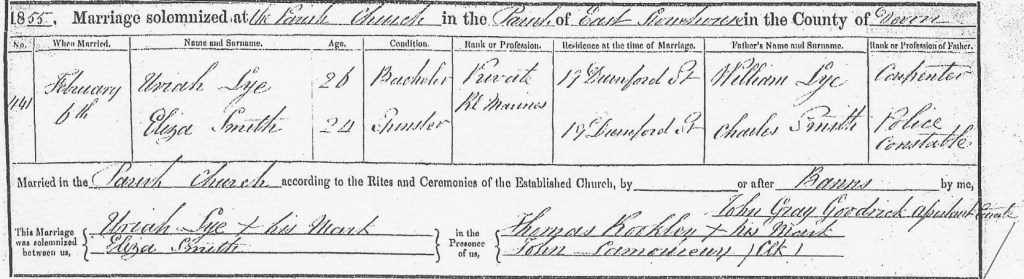 1855. Marriage solemnized at the Parish Church in the Parish of East Stonehouse in the County of Devon
No. When Married. Name and Surname. Age. Condition. Rank or Profession. Residence at the time of Marriage. Father's Name and Surname. Rank or Profession of Father.
441 February 6th Uriah Lye 26 Bachelor Private Rl Marines 19 Durnford St William Lye Carpenter
Eliza Smith 24 Spinster 19 Durnford St Charles Smith Police Constable
Married in the Parish Church according to the Rites and Ceremonies of the Established Church, by or after Banns by me,
John Gray Goodrick Assistant Curate
This Marriage was solemnized between us, Uriah Lye + his Mark in the Presence of us, Thomas + his Mark
Eliza Smith John (Clk)